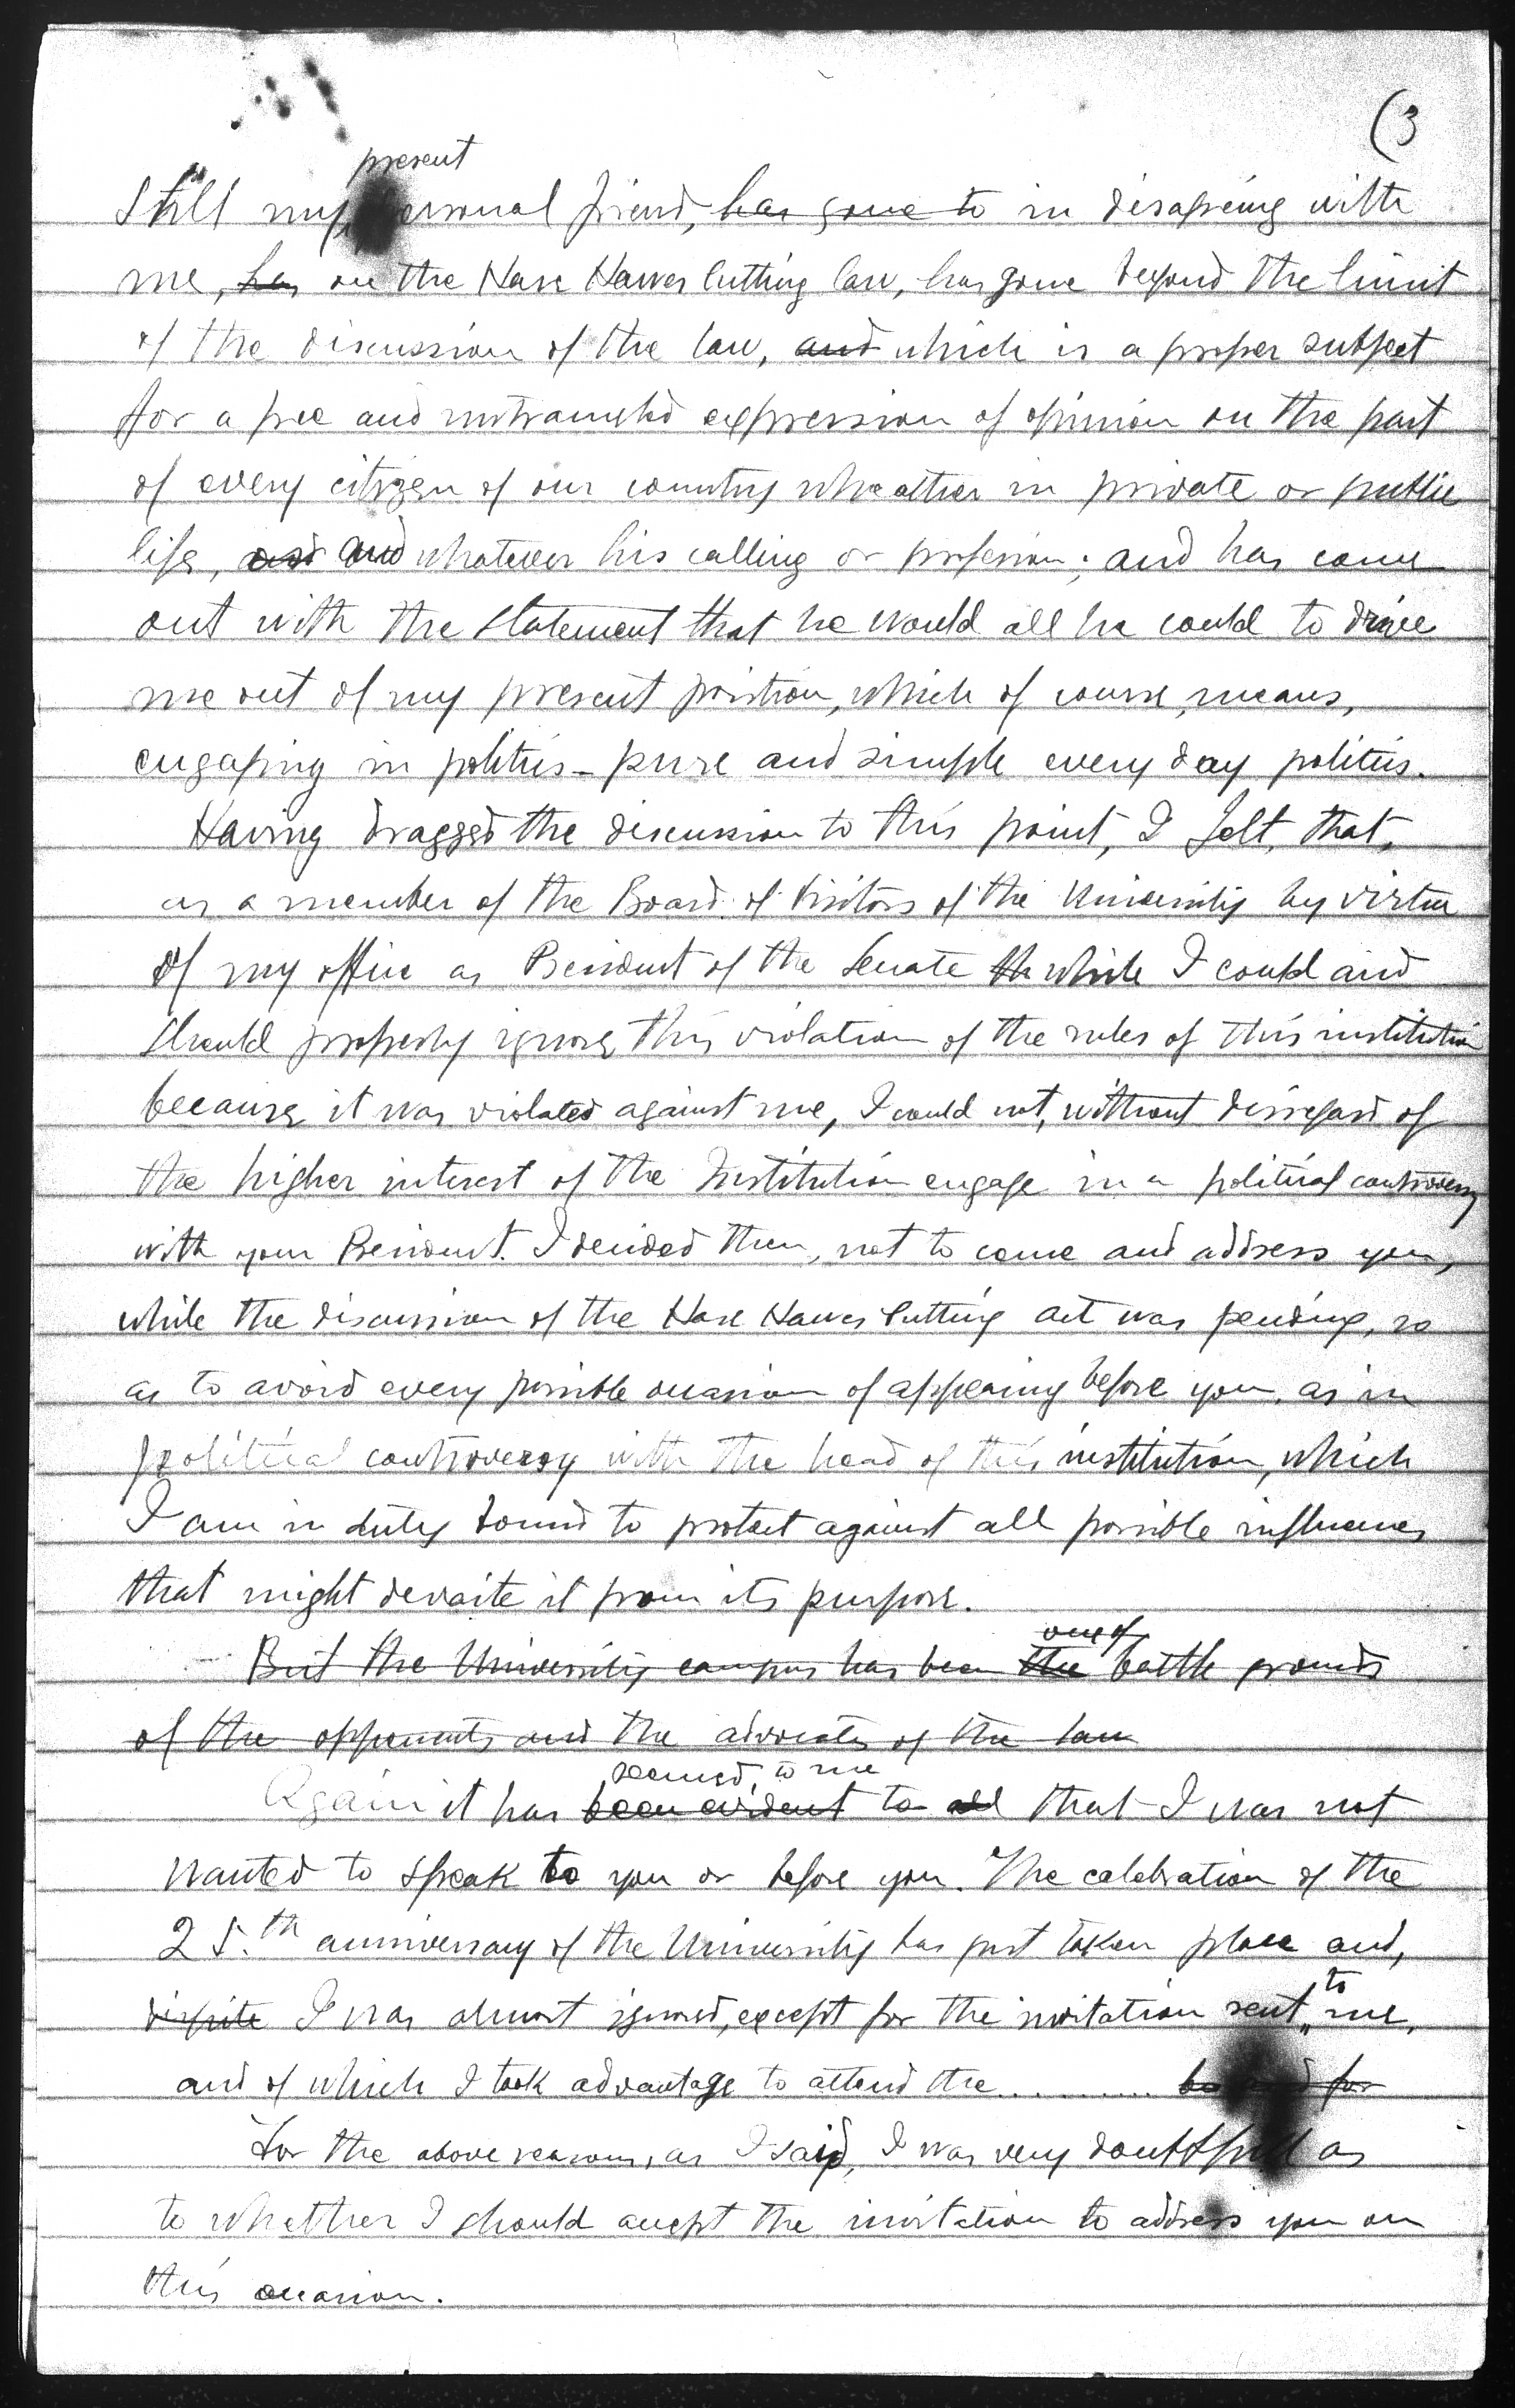 (3
present
Still my personal friend, has gone to in disagreing with
me, has on the Hare Hawes Cutting law, has gone beyond the limit
of the discussion of the law, and which is a proper subject
for a free and untrameled expression of opinion on the part
of every citizen of our country wheather in private or public
life, and and whatever his calling or profession; and has come
out with the statement that he would all he could to drive
me out of my present position, which of course, means,
engaging in politics - pure and simple every day politics.
Having dragged the discussion to this point, I felt, that,
as a member of the Board of Visitors of the University by virtue
of my office as President of the Senate th while I could and
should properly ignore, this violation of the rules of this institution
because, it was violated against me, I could not, without disregard of
the higher interest of the Institution engage in a political controversy
with your President. I decided then, not to come and address you,
while the discussion of the Hare Hawes Cutting act was pending, so
as to avoid every possible occasion of appearing before you, as in
political controversy with the head of this institution, which
I am in duty bound to protect against all possible influences
that might deviate it from its purpose.
one of
But the University campus has been the battle grounds
of the opponents and the advocates of the law
seemed, to me
Again it has been evident to all that I was not
wanted to speak to you or before you. The celebration of the
25.th anniversary of the University has just taken place and,
to
dispite I was almost ignored, except for the invitation sent me,
and of which I took advantage to attend the............ for
For the above reasons, as I said, I was very doubtful as
to whether I should accept the invitation to address you on
this occasion.